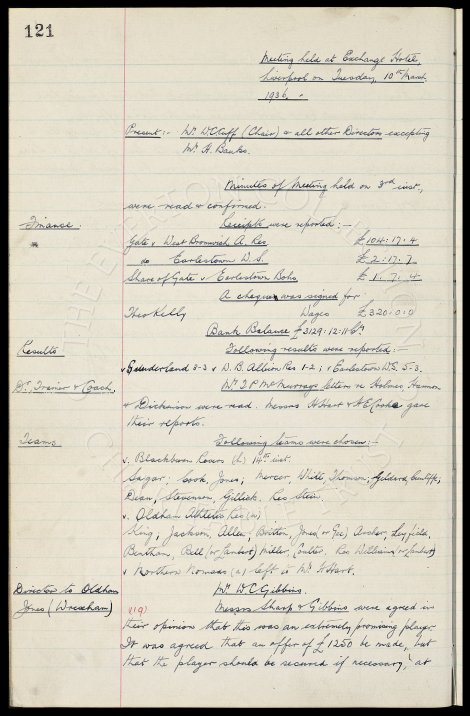 121
Meeting held at Exchange Hotel,
Liverpool on Tuesday, 10th March
1936. -
Present :- Mr. W.C. Cuff (Chair) & all other Directors excepting
Mr. A. Banks.
Minutes of Meeting held on 3rd inst,
were read & confirmed.
Finance. Receipts were reported :-
Gate v West Bromwich A. Res £104. 17. 4
do Earlestown W.S. £2. 17. 7
Share of Gate v Earlestown Bohs £1. 7. 4
A cheque was signed for
Theo Kelly Wages £320. 0. 0
Bank Balance £3129. 12. 11
Results Following results were reported:
v Sunderland 3-3 v W.B. Albion Res 1-2 ; v Earlestown W.S. 5-3.
Mr. J P letters re Holmes, Hannon
Trainer & Coach, & Dickinson were read. Messrs H. Hart & H.E. Cooke gave
their reports.
Teams Following teams were chosen :-
v. Blackburn Rovers (h) 14th inst.
Sagar: Cook, Jones; Mercer, White, Thomson; Geldard, Cunliffe,
Dean, Stevenson, Gillick. Res Stein.
v. Oldham Athletic Res (a)
King, Jackson, Allen, Britton, Jones (or Gee) Archer, Leyfield,
Bentham, Bell (or Lambert) Miller, Coulter. Res Williams (or Lambert)
v Northern Nomads (a) left to Mr. H. Hart.
Director to Oldham Mr. W.C. Gibbins.
Jones (Wrexham) (119) Messrs Sharp & Gibbins were agreed in
their opinion that this was an extremely promising player
It was agreed that an offer of £1250 be made, but
that the player should be secured if necessary, at